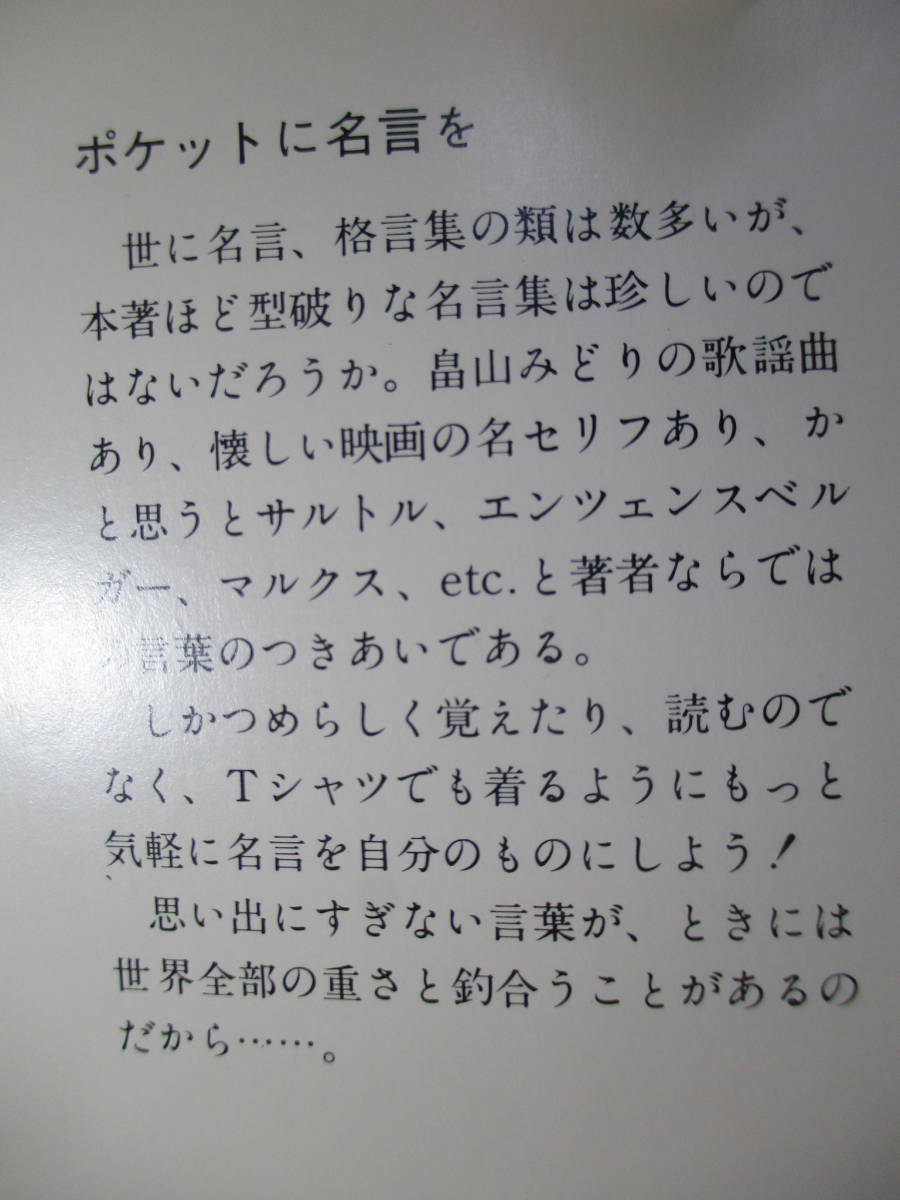 ポケットに名言を
世に名言、格言集の類は数多いが、
本著ほど型破りな名言集は珍しいので
はないだろうか。畠山みどりの歌謡曲
あり、懐しい映画の名セリフあり、か
と思うとサルトル、エンツェンスベル
ガー、マルクス、etc.と著者ならでは
の言葉のつきあいである。
しかつめらしく覚えたり、読むので
なく、Tシャツでも着るようにもっと
気軽に名言を自分のものにしよう！
思い出にすぎない言葉が、ときには
世界全部の重さと釣合うことがあるの
だから……。